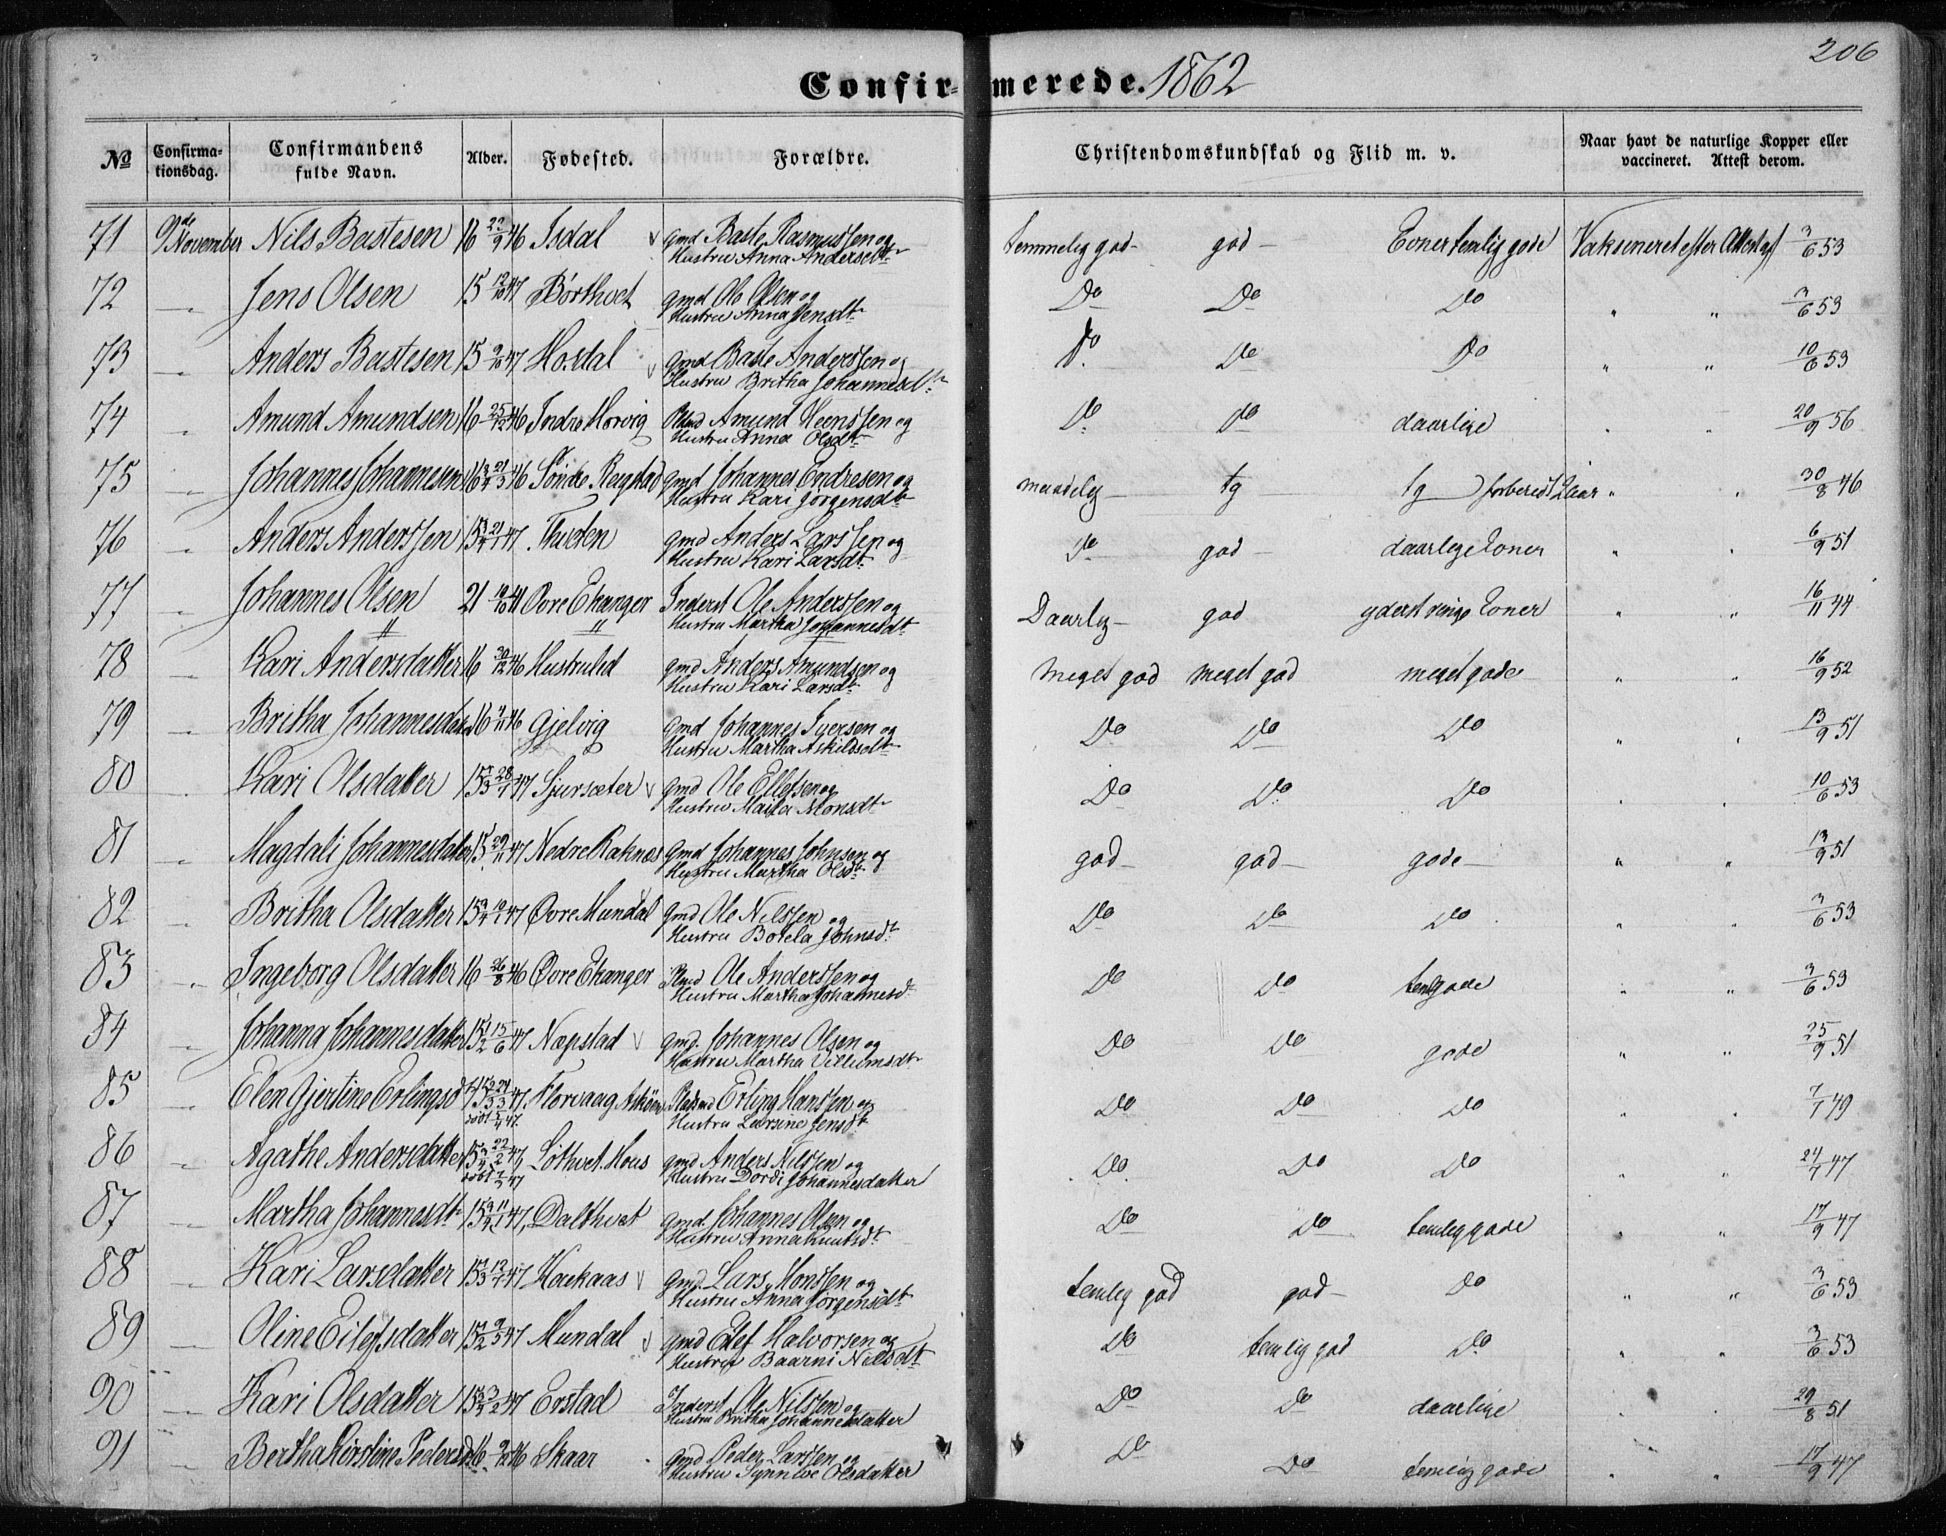 206
Confirmerede. 1862
No
Confirmationsdag.
Confirmandens fulde Navn.
Alder.
Fødested.
Forældre.
Christendomskundskab og Flid m. v.
Naar havt de naturlige Kopper eller vaccineret. Attest derom.
71 9de November Nils Bastesen 16 22/9 46 Isdal Gmd Baste Rasmussen og Hustru Anna Andersdtr temmelig god god Evner temlig gode Vaksineret efter Attest af 3/6 53
72 Jens Olsen 15 12/10 47 Børthvet Gmd Ole Olsen og Hustru Anna Jensdtr Do Do Do " " 3/6 53
73 Anders Bastesen 15 9/10 47 Hosdal Gmd Baste Anderssen og Hustru Britha Johannesdtr Do Do Do " " 10/6 53
74 Amund Amundsen 16 25/12 46 Indre Morvig Amund Monssen og Hustru Anna Olsdtr Do Do daarlige " " 20/9 56
75 Johannes Johannesen 16 3/4 21/3 46 Søndre Regstad Gmd Johannes Endresen og Hustru Kari Jørgensdtr maadelig tg tg forberedt 2 aar " " 30/8 46
76 Anders Anderssen 15 3/4 21/1 47 Thveten Gmd Anders Larssen og Hustru Kari Larsdtr Do god daarlige Evner " " 6/9 51
77 Johannes Olsen 21 19/10 41 Øvre Ekanger Inderst Ole Anderssen og Hustru Martha Johannesdtr Daarlig god yderst ringe Evner " " 16/11 44
78 Kari Andersdatter 16 30/12 46 Hustruled Gmd Anders Amundsen og Hustru Kari Larsdtr meget god meget god meget gode " " 16/9 52
79 Britha Johannesdatter 16 4/11 46 Gjelvig Gmd Johannes Iversen og Hustru Martha Askildsdtr Do Do Do " " 13/9 51
80 Kari Olsdatter 15 2/3 28/1 47 Sjursæter Gmd Ole Ellefsen og Hustru Maita Monsdtr Do Do Do " " 10/6 53
81 Magdali Johannesdatter 15 29/11 47 Nedre Raknes Gmd Johannes Johnsen og Hustru Martha Olsdtr god god gode " " 13/9 51
82 Britha Olsdatter 15 3/4 19/1 47 Øvre Mundal Gmd Ole Nilssen og Hustru Botela Johnsdtr Do Do Do " " 3/6 53
83 Ingeborg Olsdatter 16 26/8 46 Øvre Ekanger Ole Anderssen og Hustru Martha Johannesd Do Do teml gode " " 3/6 53
84 Johanna Johannesdatter 15 1/2 15/6 47 Næpstad Gmd. Johannes Olsen og Hustru Martha Villumsdtr Do Do gode " " 25/9 51
85 Elen Gjertine Erlingsd 24/3 47 Florvaag Askøen døbt 5/4 47 Pladsmd Erling Hanssen og Hustru Larsine Jensdtr Do Do Do " " 7/1 49
86 Agathe Andersdatter 15 3/4 22/2 47 Løthvet Hous døbt 47 Gmd Anders Nilssen og Hustru Dordi Johannesdatter Do Do Do 24/7 47
87 Martha Johannesdtr 15 3/4 11/1 47 Dalthvet Gmd. Johannes Olsen og Hustru Anna Knutsdtr Do Do temlig gode " " 17/9 47
88 Kari Larsdatter 15 2/3 12/1 47 Haukaas Gmd. Lars Monssen og Hustru Anna Jørgensdtr temlig god god Do " " 3/6 53
89 Oline Eilefsdatter 15 1/2 9/5 47 Mundal Gmd Eilef Halvorsen og Hustru Baarni Nilsdtr Do temlig god Do " " 3/6 53
90 Kari Olsdatter 15 3/2 47 Evstad Inderst Ole Nilssen og Hustru Britha Johannesdatter Do Do daarlige " " 29/8 51
91 Bertha Kirstine Pedersd 16 9/12 46 Skaar Gmd Peder Larssen og Hustru Synneve Olsdatter Do Do temlig gode " " 17/9 47